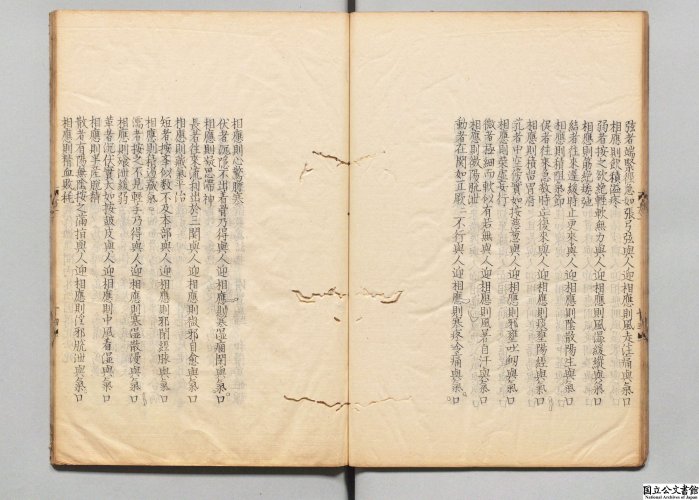 弦者端緊徑急如張弓弦與人迎相應則風走注痛與氣口
相應則飲積溢疼
弱者按之欲絶輕軟無力與人迎相應則風濕緩縱與氣口
相應則筋絶痿弛
結者往來遲緩時止更來與人迎相應則陰散陽生與氣口
相應則積阻氣節
促者往來急數時止復來與人迎相應則痰壅陽經與氣口
相應則積留胃府
芤者中空傍實如按慈葱與人迎相應則邪壅吐衄與氣口
相應則榮虚妄行
微者極細而軟似有若無與人迎相應則風暑自汗與氣口
相應則微陽脱泄
動者在關如豆厥厥不行與人迎相應則寒疼冷痛與氣口
相應則心驚膽寒
伏者沉隱不出著骨乃得與人迎相應則寒濕痼閉與氣口
相應則凝思滯神
長者往來流利出於三關與人迎相應則微邪自愈與氣口
相應則藏氣平治
短者擧按似數不及本部與人迎相應則邪閉經脉與氣口
相應則積遏藏氣
濡者按之不見輕手乃得與人迎相應則寒濕散漫與氣口
相應則飧泄緩弱
革者沉伏實大如按鼓皮與人迎相應則中風著濕與氣口
相應則半產脱精
散者有陽無陰按之滿指與人迎相應則淫邪脱泄與氣口
相應則精血敗耗
国立公文書館
National Archives of Japan